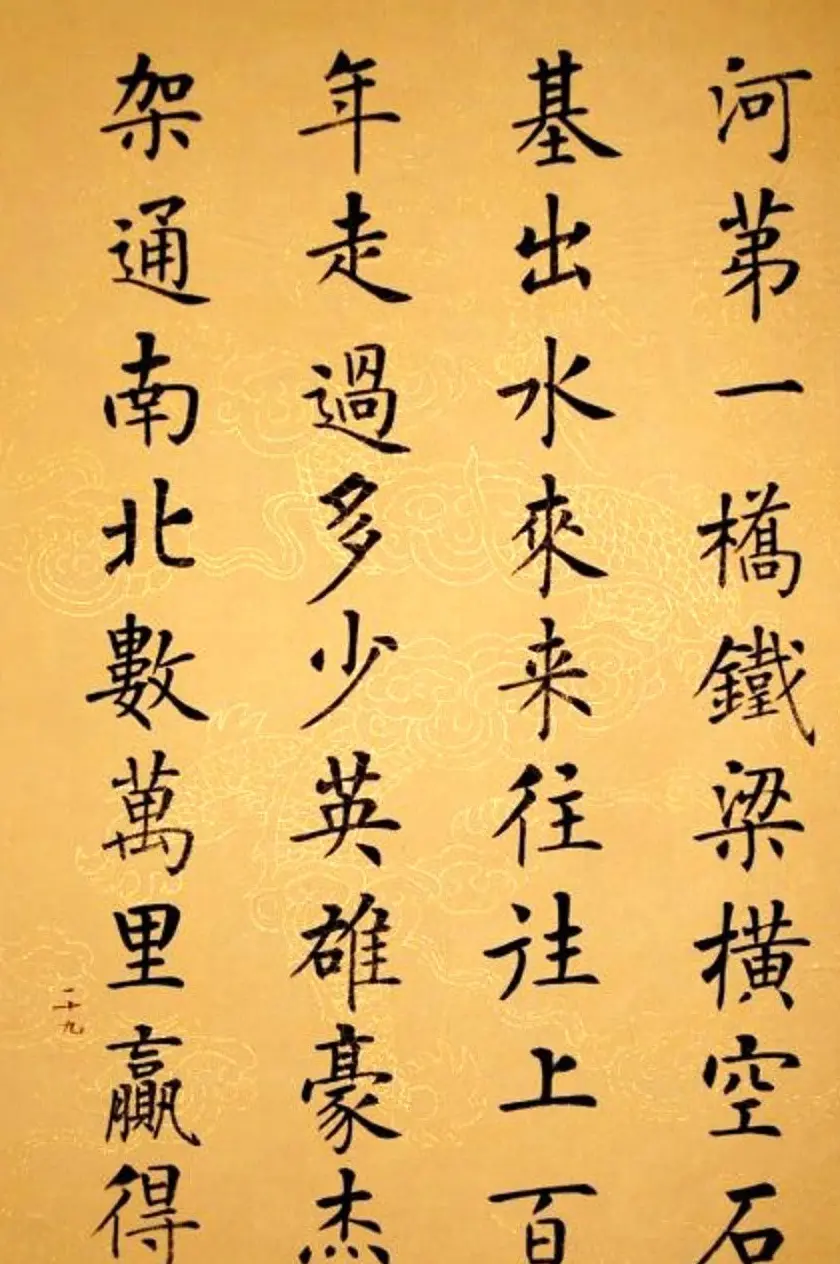 河苐一橋鐵梁橫空石
基出水來来往往上百
年走過多少英雄豪杰
架通南北數萬里贏得
二十九